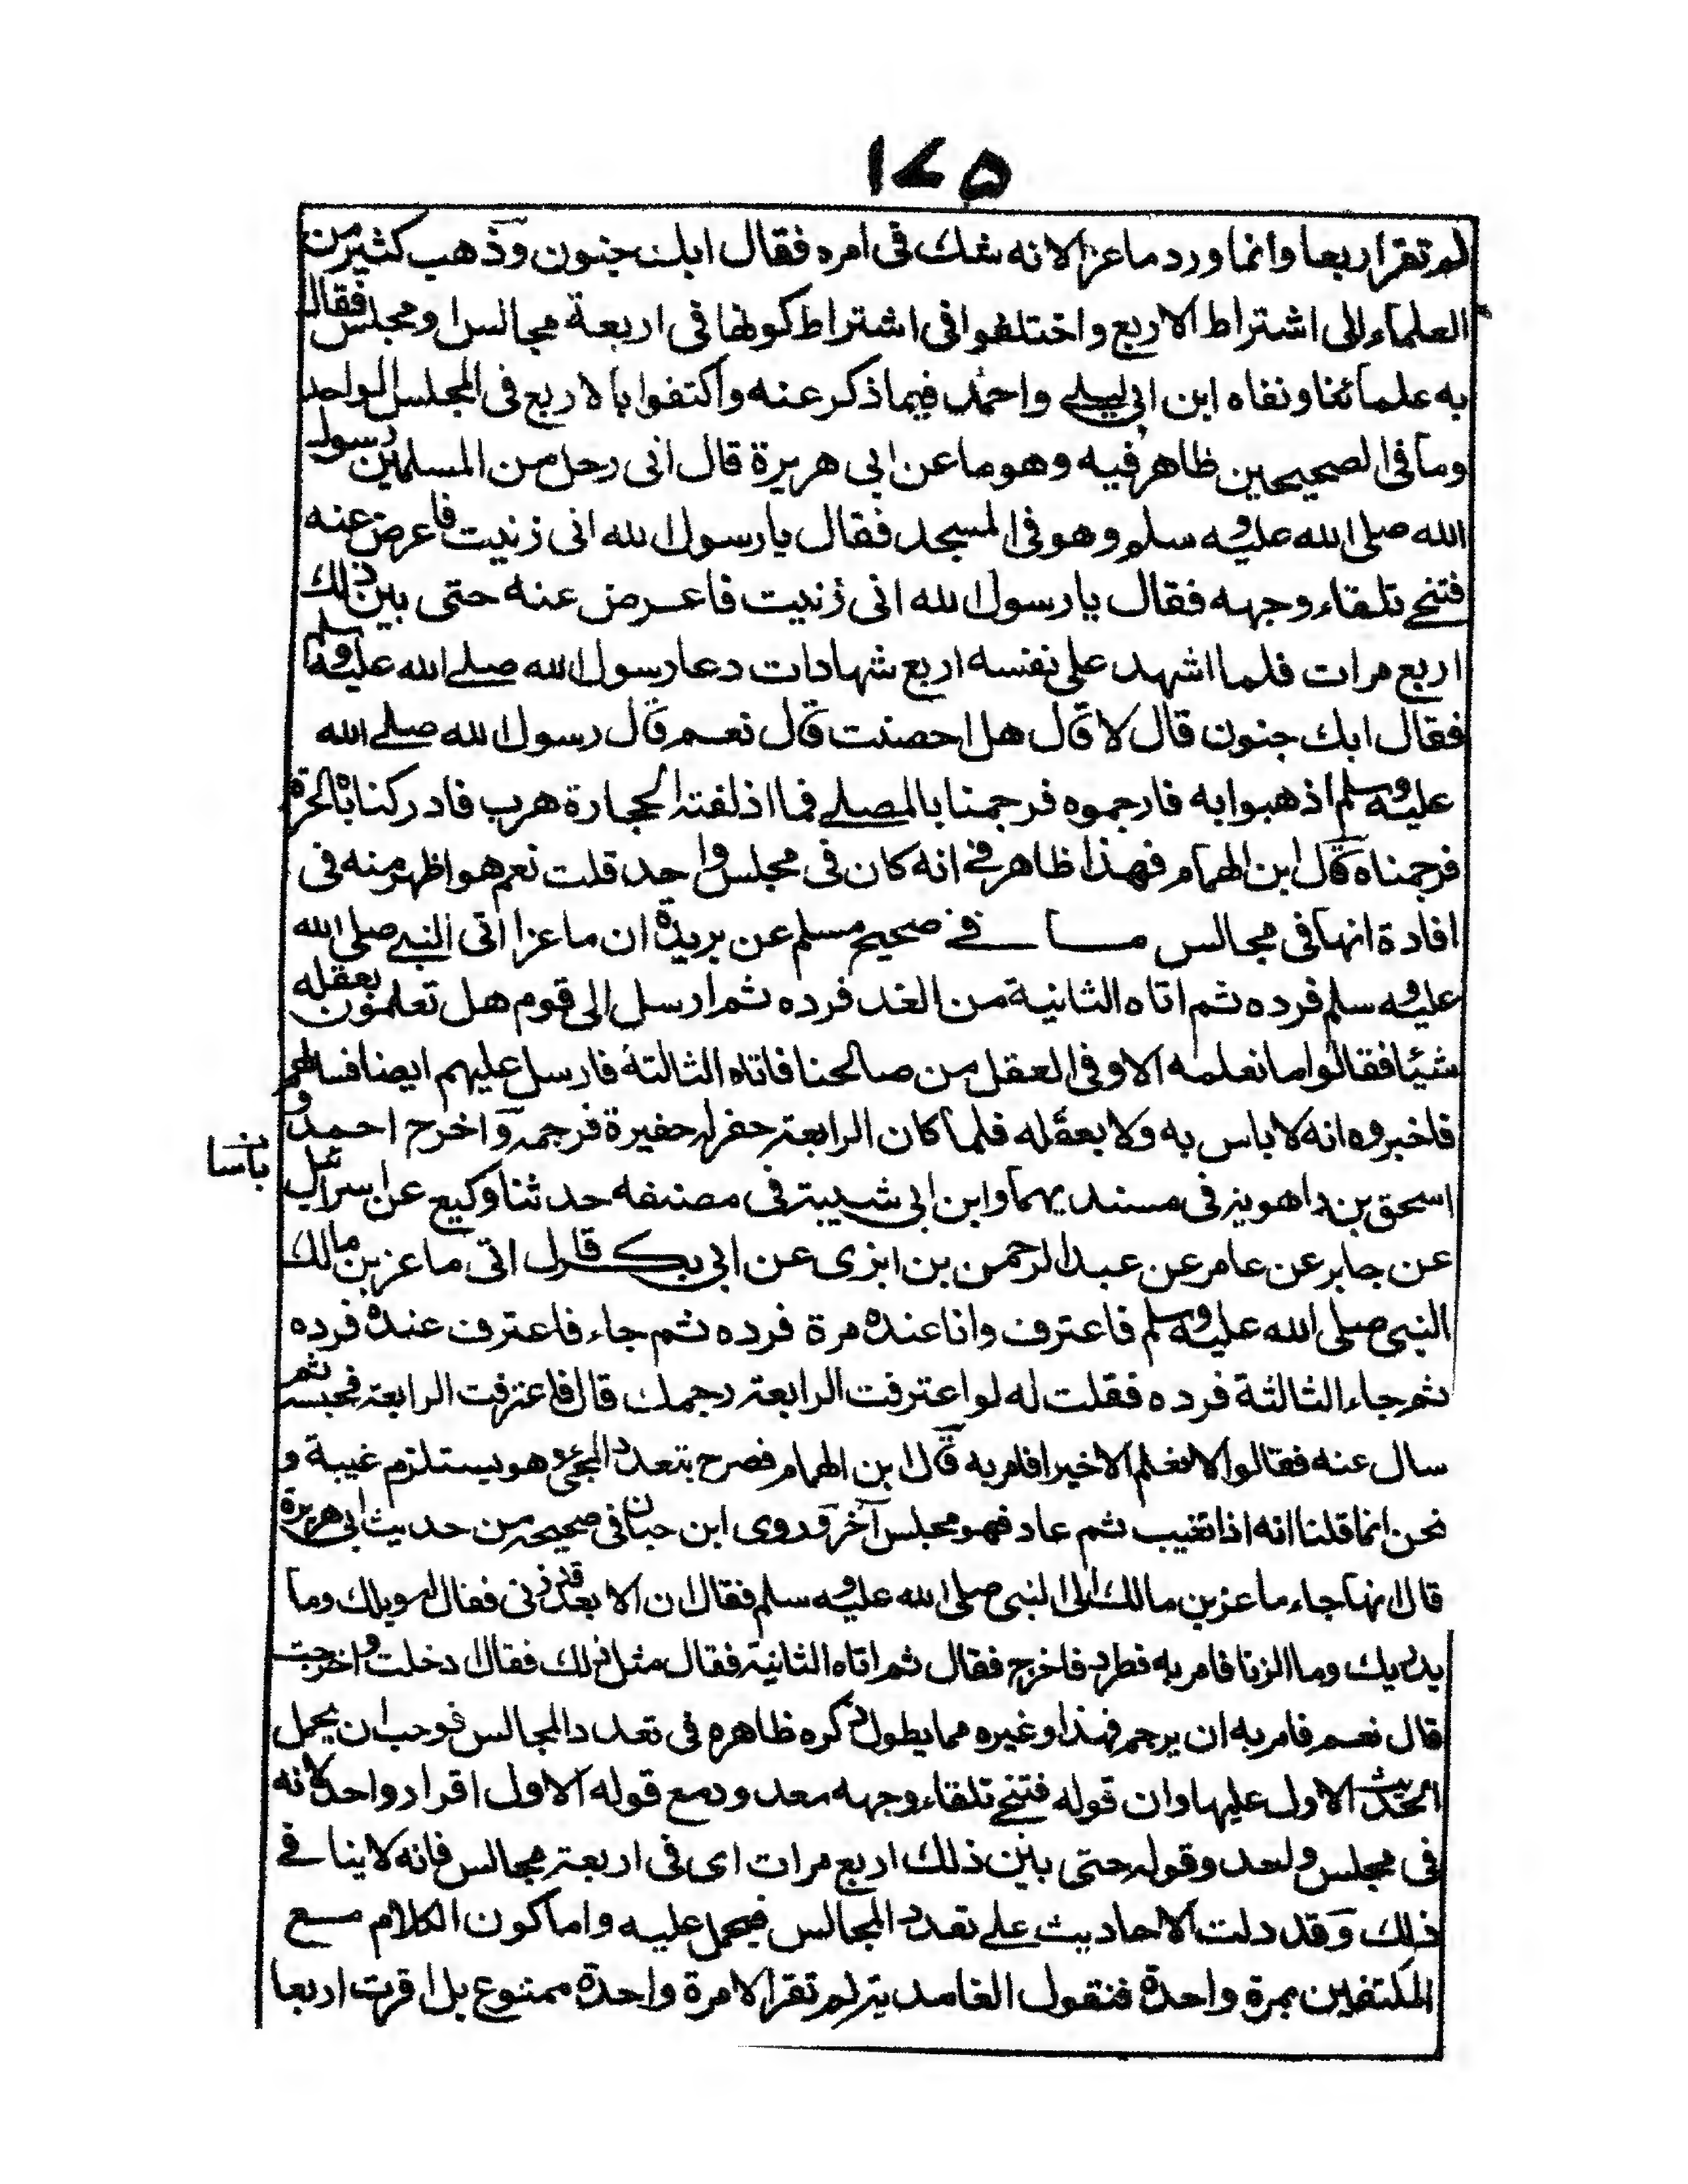 ١٤٥
لم تقر اربعا وانما ورد ماعز الا نه شك فى امره فقال ابك جنون وذهب كثير من
العلماء الى اشتراط الاربع واختلفوا فى اشتراط كونها فى اربعة مجالس او مجلس فقال
به علمائنا ونفاه ابن ابى ليلى واحمد فيما ذكر عنه واكتفوا بالاربع فى المجلس الواحد
وما فى الصحيحين ظاهر فيه وهو ما عن ابى هريرة قال اتى رجل من المسلمين رسول
الله صلى الله عليه وسلم وهو فى المسجد فقال يا رسول الله انى زنيت فاعرض عنه
فتنحى تلقاء وجهه فقال يا رسول الله انى زنيت فاعرض عنه حتى بين ذلك
اربع مرات فلما اشهد على نفسه اربع شهادات دعا رسول الله صلى الله عليه وسلم
فقال ابك جنون قال لا قال هل احصنت قال نعم قال رسول الله صلى الله
عليه وسلم اذهبوا به فارجموه فرجمنا بالمصلى فما اذلفته الحجارة هرب فادركناه بالحرة
فرجمناه قال ابن الهمام فهذا ظاهر فى انه كان فى مجلس واحد قلت نعم هو اظهر منه فى
افادة انها فى مجالس ما فى صحيح مسلم عن بريدة ان ماعزا اتى النبى صلى الله
عليه وسلم فرده ثم اتاه الثانية من الغد فرده ثم ارسل الى قوم هل تعلمون بعقله
شيئا فقالوا ما نعلمه الا وفى العقل من صالحنا فاتاه الثالثة فارسل عليهم ايضا فسالهم
فاخبروه انه لا باس به ولا بعقله فلما كان الرابعة حفر له حفيرة فرجمه واخرج احمد و
باسا
اسحق بن راهويه فى مسنديهما وابن ابى شيبة فى مصنفه حدثنا وكيع عن اسرائيل
عن جابر عن عامر عن عبد الرحمن بن ابزى عن ابى بكر قال اتى ماعز بن مالك
النبى صلى الله عليه وسلم فاعترف وانا عنده مرة فرده ثم جاء فاعترف عنده فرده
ثم جاء الثالثة فرده فقلت له لو اعترفت الرابعة رجمك قال فاعترفت الرابعة فحبسه ثم
سال عنه فقالوا لا نعلم الا خيرا فامر به قال ابن الهمام فصرح بتعدد المجئ وهو يستلزم غيبة و
نحن انما قلنا انه اذا تغيب ثم عاد فهو مجلس آخر وروى ابن حبان فى صحيحه من حديث ابى هريرة
قال انها جاء ماعز بن مالك الى النبى صلى الله عليه وسلم فقال ان الا بعد قد زنى فقال له ويلك وما
يدريك وما الزنا فامر به فطرد فاخرج فقال ثم اتاه الثانية فقال مثل ذلك فقال دخلت واخرجت
قال نعم فامر به ان يرجم فهذا وغيره مما يطول ذكره ظاهره فى تعدد المجالس فوجب ان يحمل
الحديث الاول عليها وان قوله فتنحى تلقاء وجهه معدود مع قوله الاول اقرار واحد لانه
فى مجلس واحد وقوله حتى بين ذلك اربع مرات اى فى اربعة مجالس فانه لا ينافى
ذلك وقد دلت الاحاديث على تعدد المجالس فيحمل عليه واما كون الكلام مع
المكتفين بمرة واحدة فنقول الغامدية لم تقر الا مرة واحدة ممنوع بل اقرت اربعا